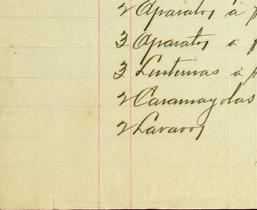 2 Aparatos á p
3 Aparatos á p
3 Linternas á p
2 Caramayolas
2 Lavavos